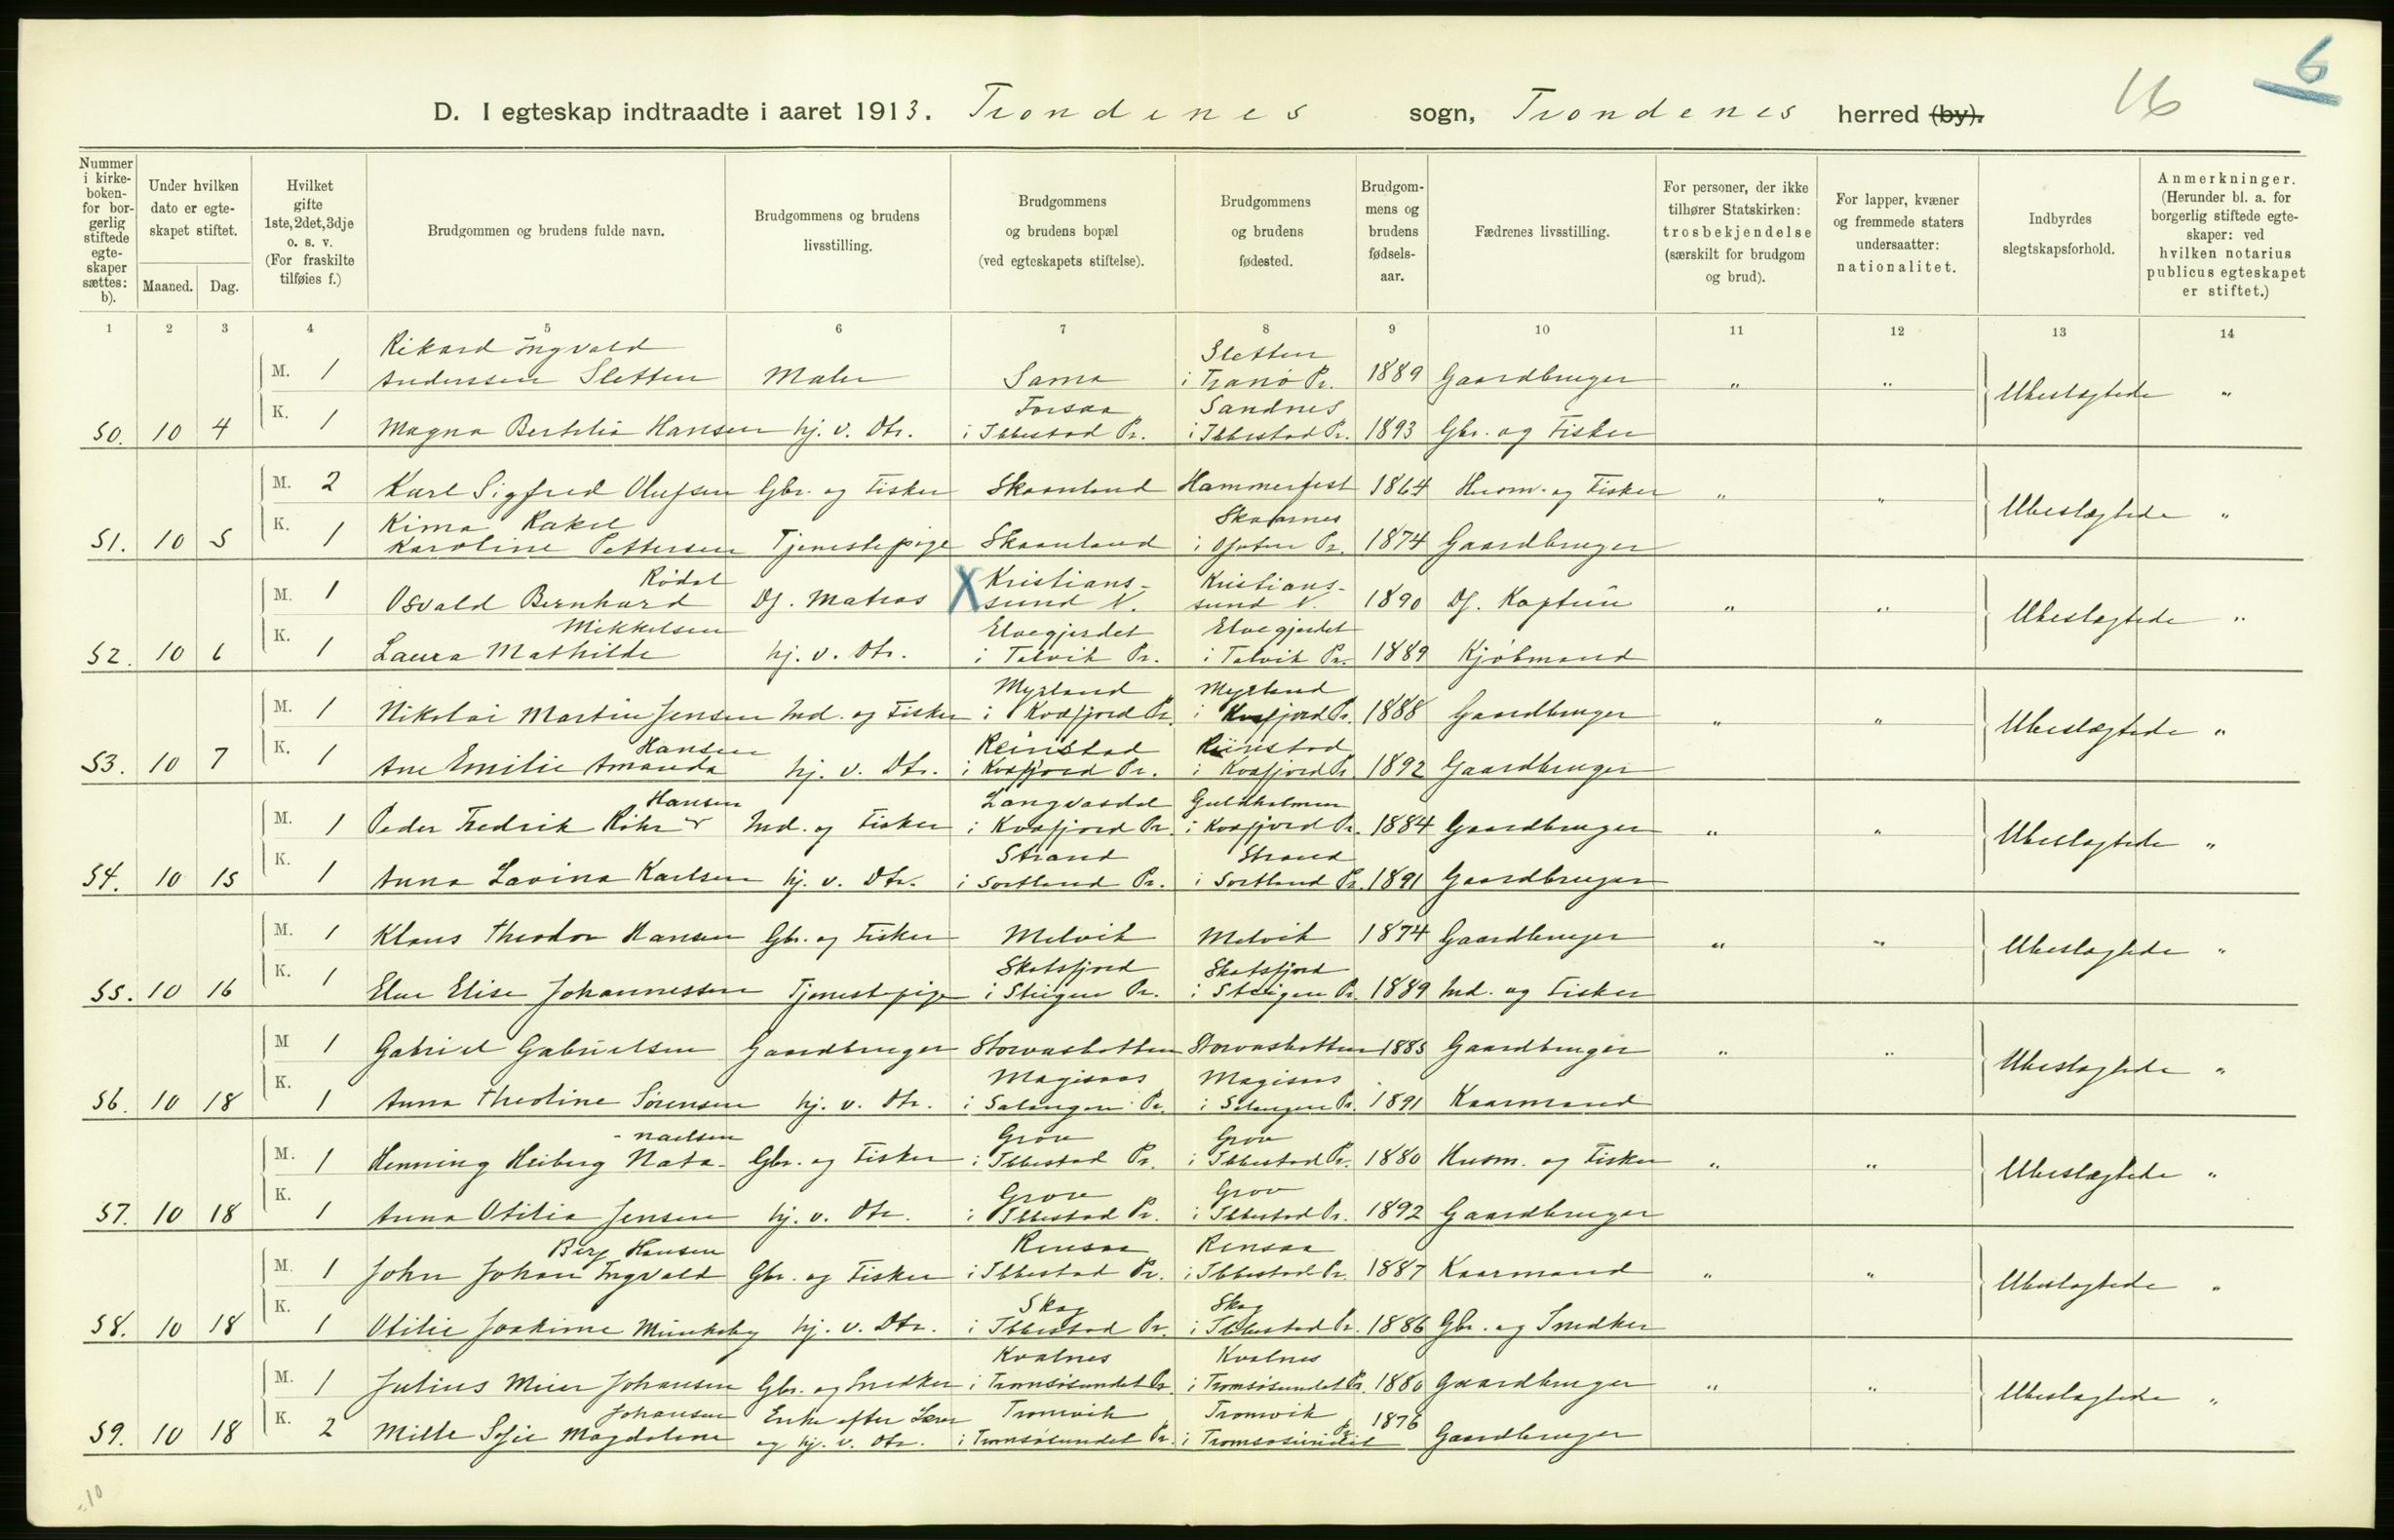 6
16
D. I egteskap indtraadte i aaret 1913. Trondenes sogn, Trondenes herred (by).
Nummer i kirkeboken- for borgerlig stiftede egteskaper sættes: b).
Under hvilken dato er egteskapet stiftet.
Maaned. Dag.
Hvilket gifte 1ste, 2det, 3dje o. s. v. (For fraskilte tilføies f.)
Brudgommen og brudens fulde navn.
Brudgommens og brudens livsstilling.
Brudgommens og brudens bopæl (ved egteskapets stiftelse).
Brudgommens og brudens fødested.
Brudgommens og brudens fødselsaar.
Fædrenes livsstilling.
For personer, der ikke tilhører Statskirken: trosbekjendelse (særskilt for brudgom og brud).
For lapper, kvæner og fremmede staters undersaatter: nationalitet.
Indbyrdes slegtskapsforhold.
Anmerkninger. (Herunder bl. a. for borgerlig stiftede egteskaper: ved hvilken notarius publicus egteskapet er stiftet.)
1 2 3 4 5 6 7 8 9 10 11 12 13 14
Rikard Ingvald Sletten
M. 1 Anderssen Sletten Maler Sama i Tranø Pr. 1889 Gaardbruger " " Ubeslægtede "
Forsaa Sandnes
50. 10 4 K. 1 Magna Berthlia Hansen hj. v. Dtr. i Ibbestad Pr. i Ibbestad Pr. 1893 Gbr. og Fisker
M. 2 Karl Sigfred Olufsen Gbr. og Fisker Skaanland Hammerfest 1864 Husm. og Fisker " " Ubeslægtede "
Kima Rakel Skarnes
51. 10 5 K. 1 Karoline Pettersen Tjenestepige Skaanland i Ofoten Pr. 1874 Gaardbruger
Rødal Kristians- Kristians-
M. 1 Osvald Bernhard Df. Matros X sund N. sund N. 1890 Df. Kaptein " " Ubeslægtede "
Mikkelsen Elvegjerdet Elvegjerdet
52. 10 6 K. 1 Laura Mathilde hj. v. Dtr. i Talvik Pr. i Talvik Pr. 1889 Kjøbmand
Myrland Myrland
M. 1 Nikolai Martin Jensen Ind. og Fisker i Kvæfjord Pr. i Kvæfjord Pr. 1888 Gaardbruger " " Ubeslægtede "
Hansen Reinstad Reinstad
53. 10 7 K. 1 Ane Emilie Amanda hj. v. Dtr. i Kvæfjord Pr. i Kvæfjord Pr. 1892 Gaardbruger
Hansen Langvasdal Guldholmen
M. 1 Peder Fredrik Røhr Ind. og Fisker i Kvæfjord Pr. i Kvæfjord Pr. 1884 Gaardbruger " " Ubeslægtede "
Strand Strand
54. 10 15 K. 1 Anna Lavina Karlsen hj. v. Dtr. i Sortland Pr. i Sortland Pr. 1891 Gaardbruger
M. 1 Klaus Theodor Hansen Gbr. og Fisker Melvik Melvik 1874 Gaardbruger " " Ubeslægtede "
Skotsfjord Skotsfjord
55. 10 16 K. 1 Elne Elise Johannessen Tjenestpige i Steigen Pr. i Steigen Pr. 1889 Ind. og Fisker
M 1 Gabriel Gabrielsen Gaardbruger Storvasbotten Storvasbotten 1885 Gaardbruger " " Ubeslægtede "
Magisaas Magisaas
56. 10 18 K. 1 Anna Theoline Sørensen hj. v. Dtr. i Salangen Pr. i Salangen Pr. 1891 Kaarmand
-naelsen Grov Grov
M. 1 Henning Heiberg Nata- Gbr. og Fisker i Ibbestad Pr. i Ibbestad Pr. 1880 Husm. og Fisker " " Ubeslægtede "
Grov Grov
57. 10 18 K. 1 Anna Otilia Jensen hj. v. Dtr. i Ibbestad Pr. i Ibbestad Pr. 1892 Gaardbruger
Berg Hansen Rensaa Rensaa
M. 1 John Johan Ingvald Gbr. og Fisker i Ibbestad Pr. i Ibbestad Pr. 1887 Kaarmand " " Ubeslægtede "
Skog Skog
58. 10 18 K. 1 Otilie Joakime Munkeby hj. v. Dtr. i Ibbestad Pr. i Ibbestad Pr. 1886 Gbr. og Snedker
Kvalnes Kvalnes
M. 1 Julius Meier Johansen Gbr. og Snedker i Tromsøsundet Pr. i Tromsøsundet Pr. 1880 Gaardbruger " " Ubeslægtede "
Johansen Enke efter Lærer Tromvik Tromvik Pr. 1876
59. 10 18 K. 2 Mille Sofie Magdalene og hj. v. Dtr. i Tromsøsundet Pr. i Tromsøsundet Gaardbruger
10